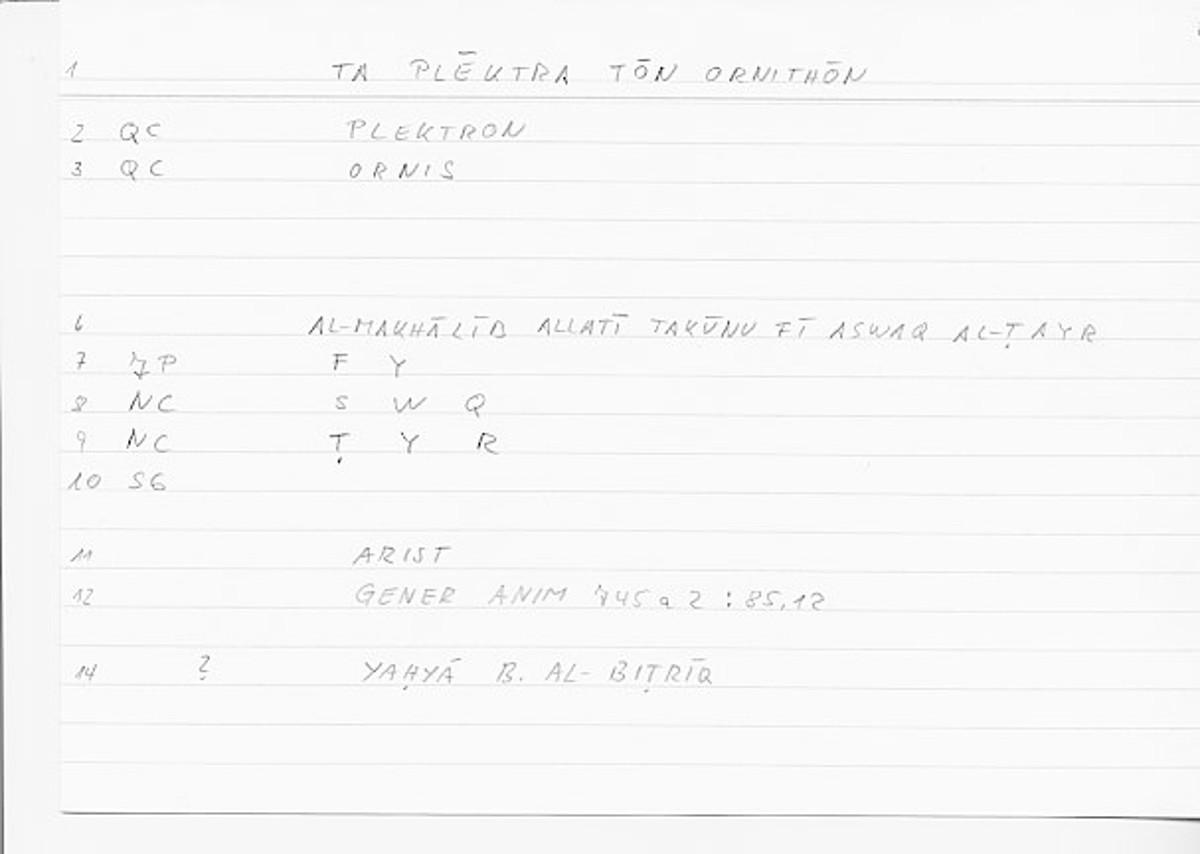 1 TA PLĒKTRA TŌN ORNITHŌN
2 QC PLEKTRON
3 QC ORNIS
6 AL-MAKHĀLĪB ALLATĪ TAKŪNU FĪ ASWAQ AL-ṬAYR
7 P F Y
8 NC S W Q
9 NC Ṭ Y R
10 SG
11 ARIST
12 GENER ANIM 745 a 2 : 85,12
14 ? YAḤYĀ B. AL-BIṬRĪQ